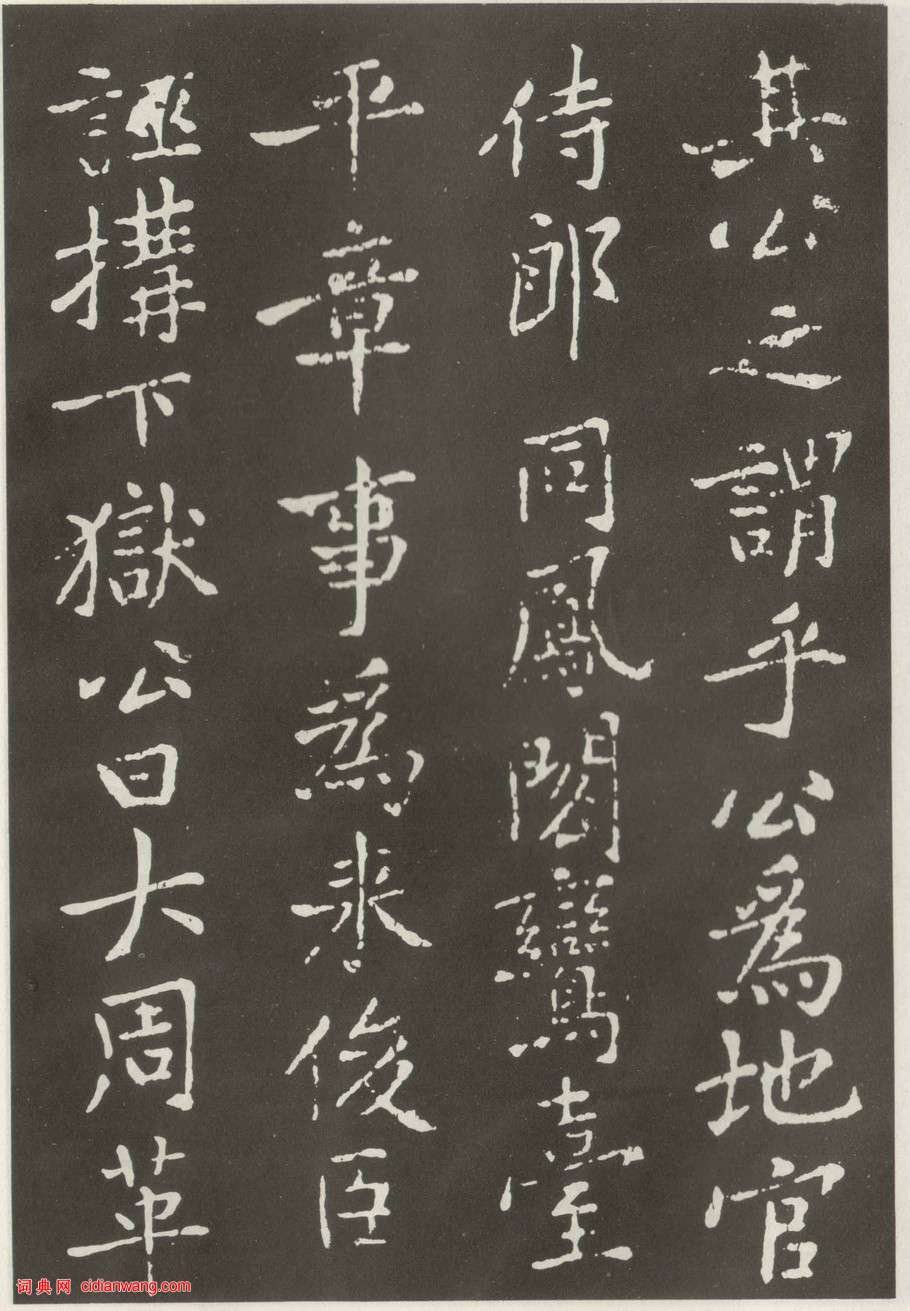 其公之謂乎公爲地官
侍郎同鳳閣鸞臺
平章事爲來俊臣
誣搆下獄公曰大周革
词典网 cidianwang.com